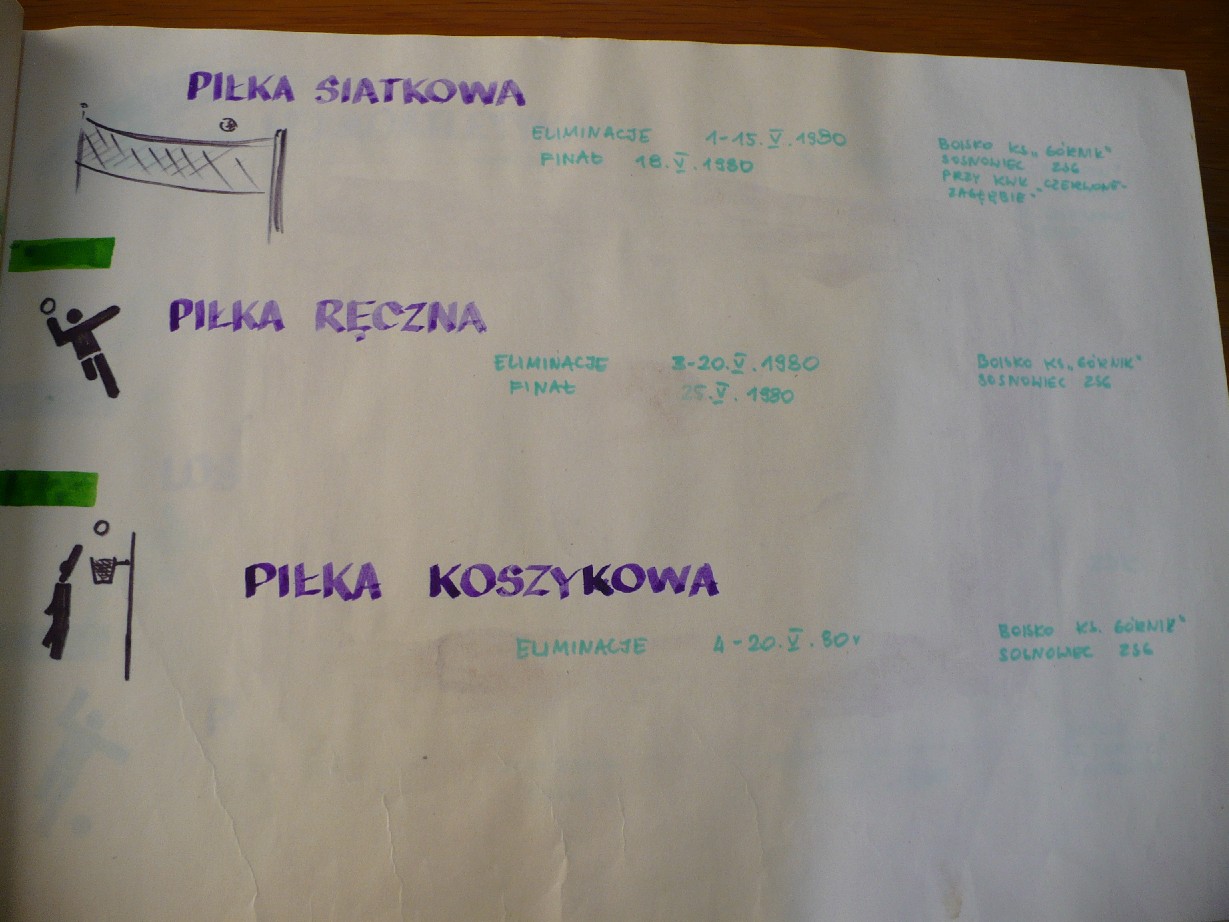 PIŁKA SIATKOWA
ELIMINACJE 1-15.V.1980
FINAŁ 18.V.1980
BOISKO KS„ GÓRNIK"
SOSNOWIEC ZSG
PRZY KWK „CZERWONE-
ZAGŁĘBIE"
PIŁKA RĘCZNA
ELIMINACJE 3-20.V.1980
FINAŁ 25.V.1980
BOISKO KS„GÓRNIK"
SOSNOWIEC ZSG
PIŁKA KOSZYKOWA
ELIMINACJE 4-20.V.80r
BOISKO KS. GÓRNIK"
SOSNOWIEC ZSG